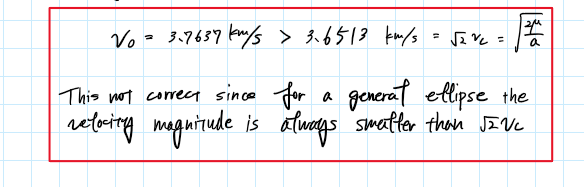 V₀ = 3.7637 km/s > 3.6513 km/s = √2 Vc = √(2μ/a)
This not correct since for a general ellipse the
velocity magnitude is always smaller than √2 Vc